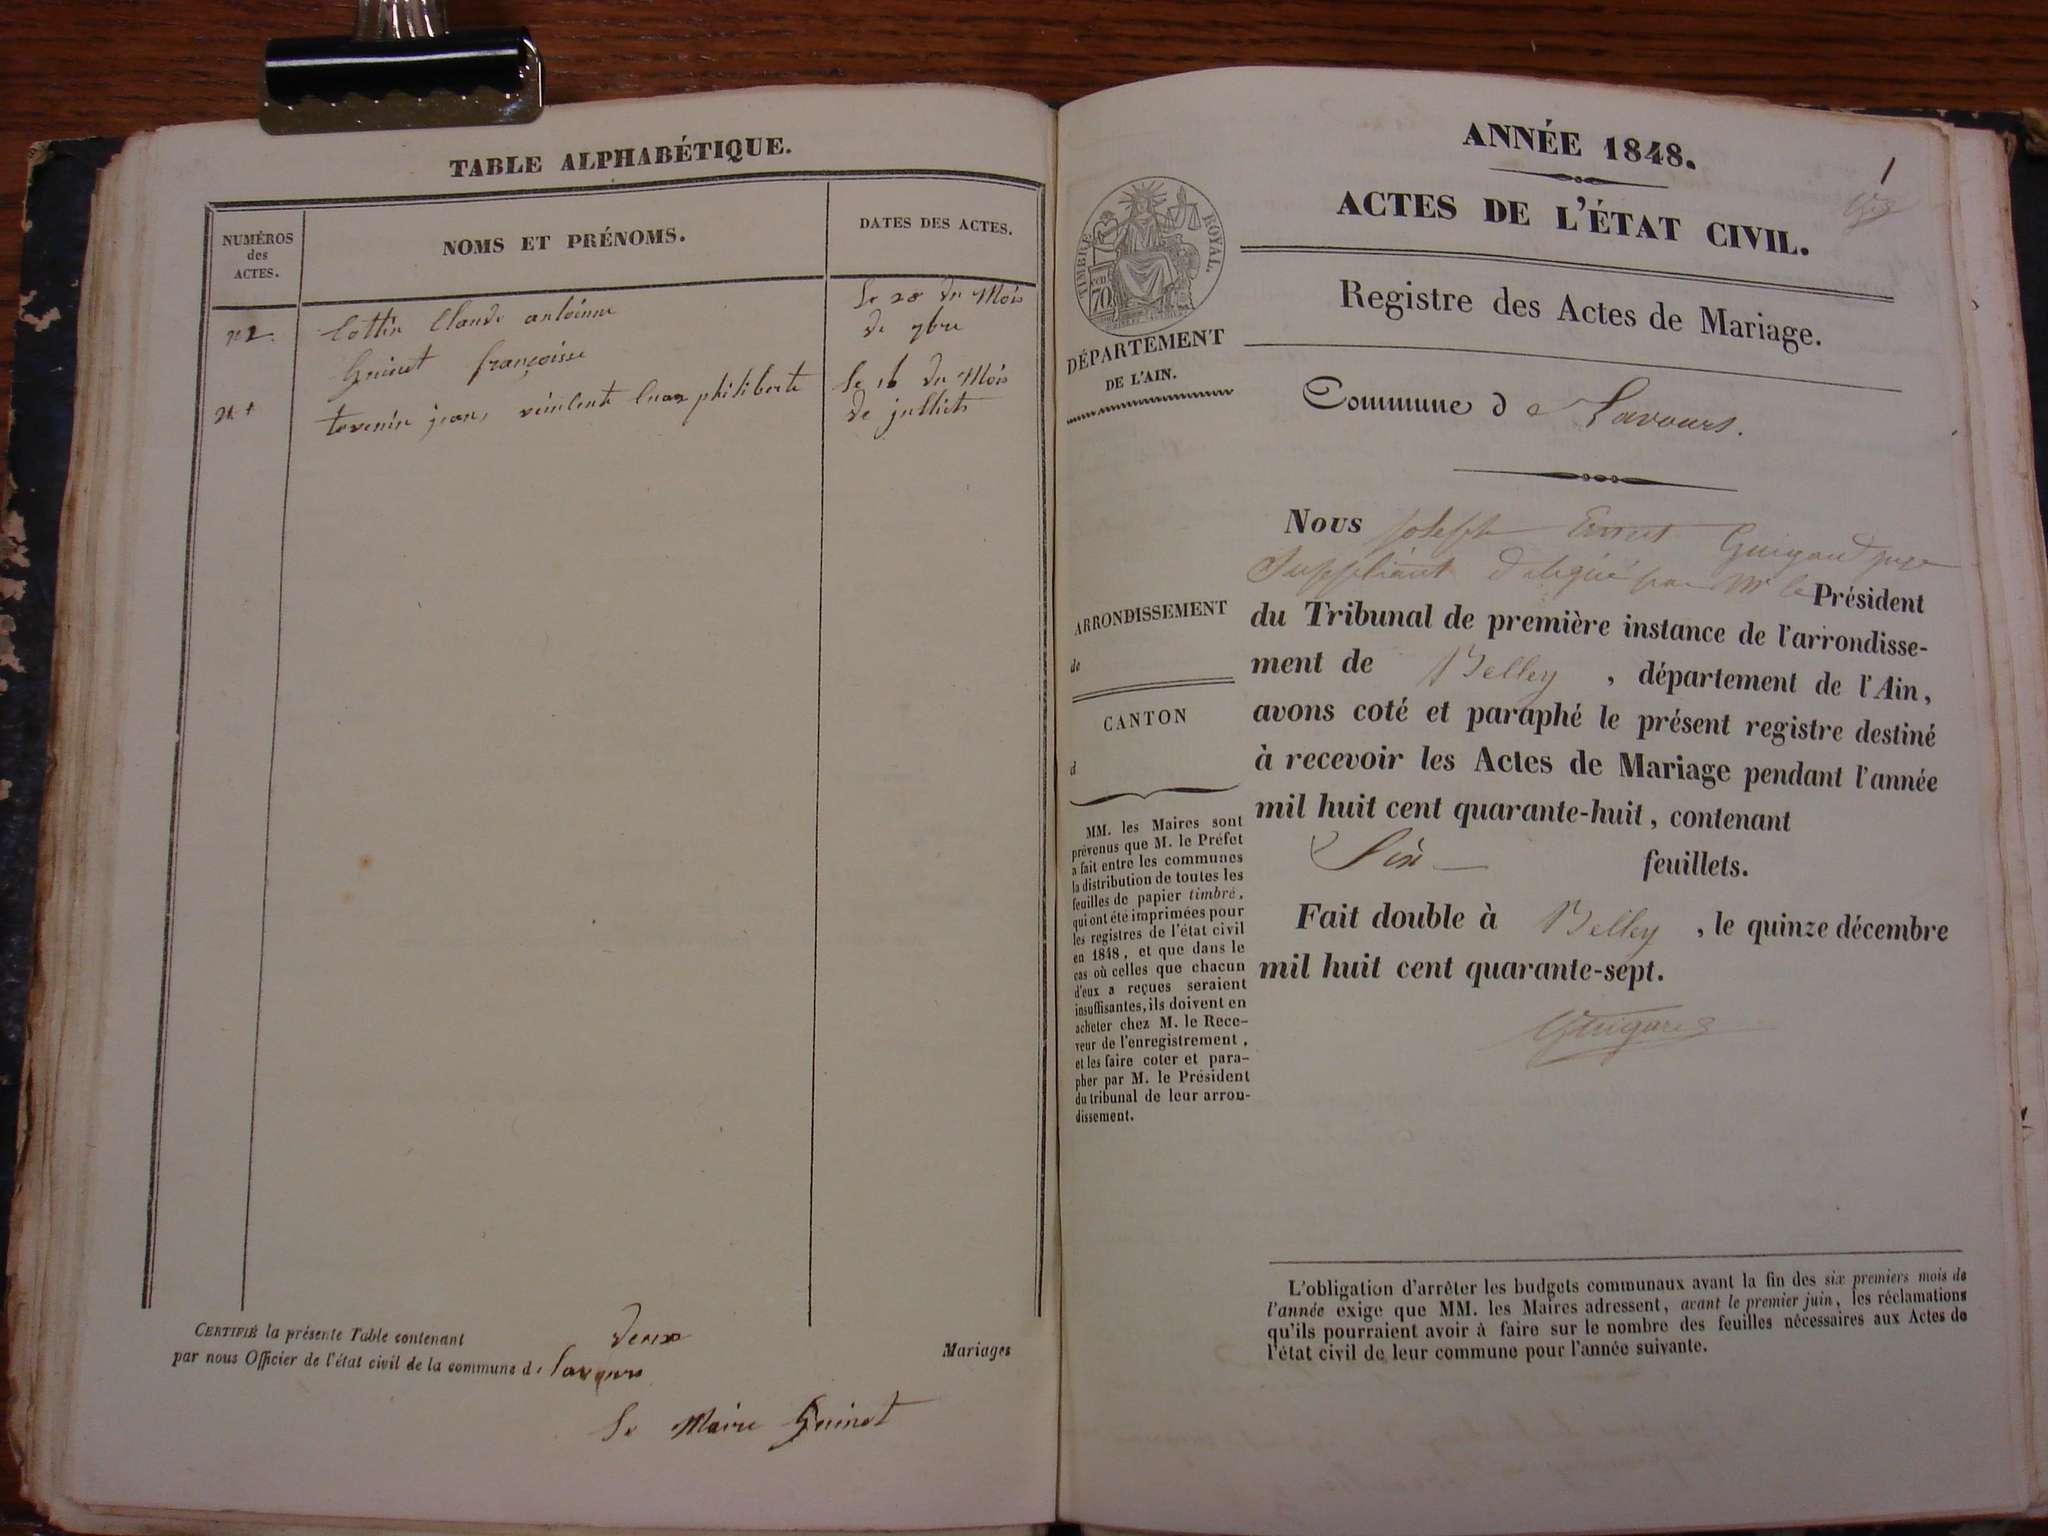 TABLE ALPHABÉTIQUE.
NUMÉROS
des
ACTES.
NOMS ET PRÉNOMS.
DATES DES ACTES.
n 2. Cottin Claude antoinne
Guinet françoisse
Le 28 du Mois
de 7bre
n 1 tevenin jean, philiberte
Le 16 du Mois
de julliets
CERTIFIÉ la présente Table contenant deux Mariages
par nous Officier de l'état civil de la commune de Lavours
Le Maire Guinet
ANNÉE 1848.
1
ACTES DE L'ÉTAT CIVIL.
TIMBRE ROYAL.
70
DÉPARTEMENT
DE L'AIN.
Registre des Actes de Mariage.
Commune de Lavours.
ARRONDISSEMENT
de
CANTON
d
MM. les Maires sont
prévenus que M. le Préfet
a fait entre les communes
la distribution de toutes les
feuilles de papier timbré,
qui ont été imprimées pour
les registres de l'état civil
en 1848, et que dans le
cas où celles que chacun
d'eux a reçues seraient
insuffisantes, ils doivent en
acheter chez M. le Rece-
veur de l'enregistrement,
et les faire coter et para-
pher par M. le Président
du tribunal de leur arron-
dissement.
Nous Joseph Ernest Guigard juge
Suppléant délégué par Mr le Président
du Tribunal de première instance de l'arrondisse-
ment de Belley, département de l'Ain,
avons coté et paraphé le présent registre destiné
à recevoir les Actes de Mariage pendant l'année
mil huit cent quarante-huit, contenant
Six feuillets.
Fait double à Belley, le quinze décembre
mil huit cent quarante-sept.
Guigard
L'obligation d'arrêter les budgets communaux avant la fin des six premiers mois de
l'année exige que MM. les Maires adressent, avant le premier juin, les réclamations
qu'ils pourraient avoir à faire sur le nombre des feuilles nécessaires aux Actes de
l'état civil de leur commune pour l'année suivante.